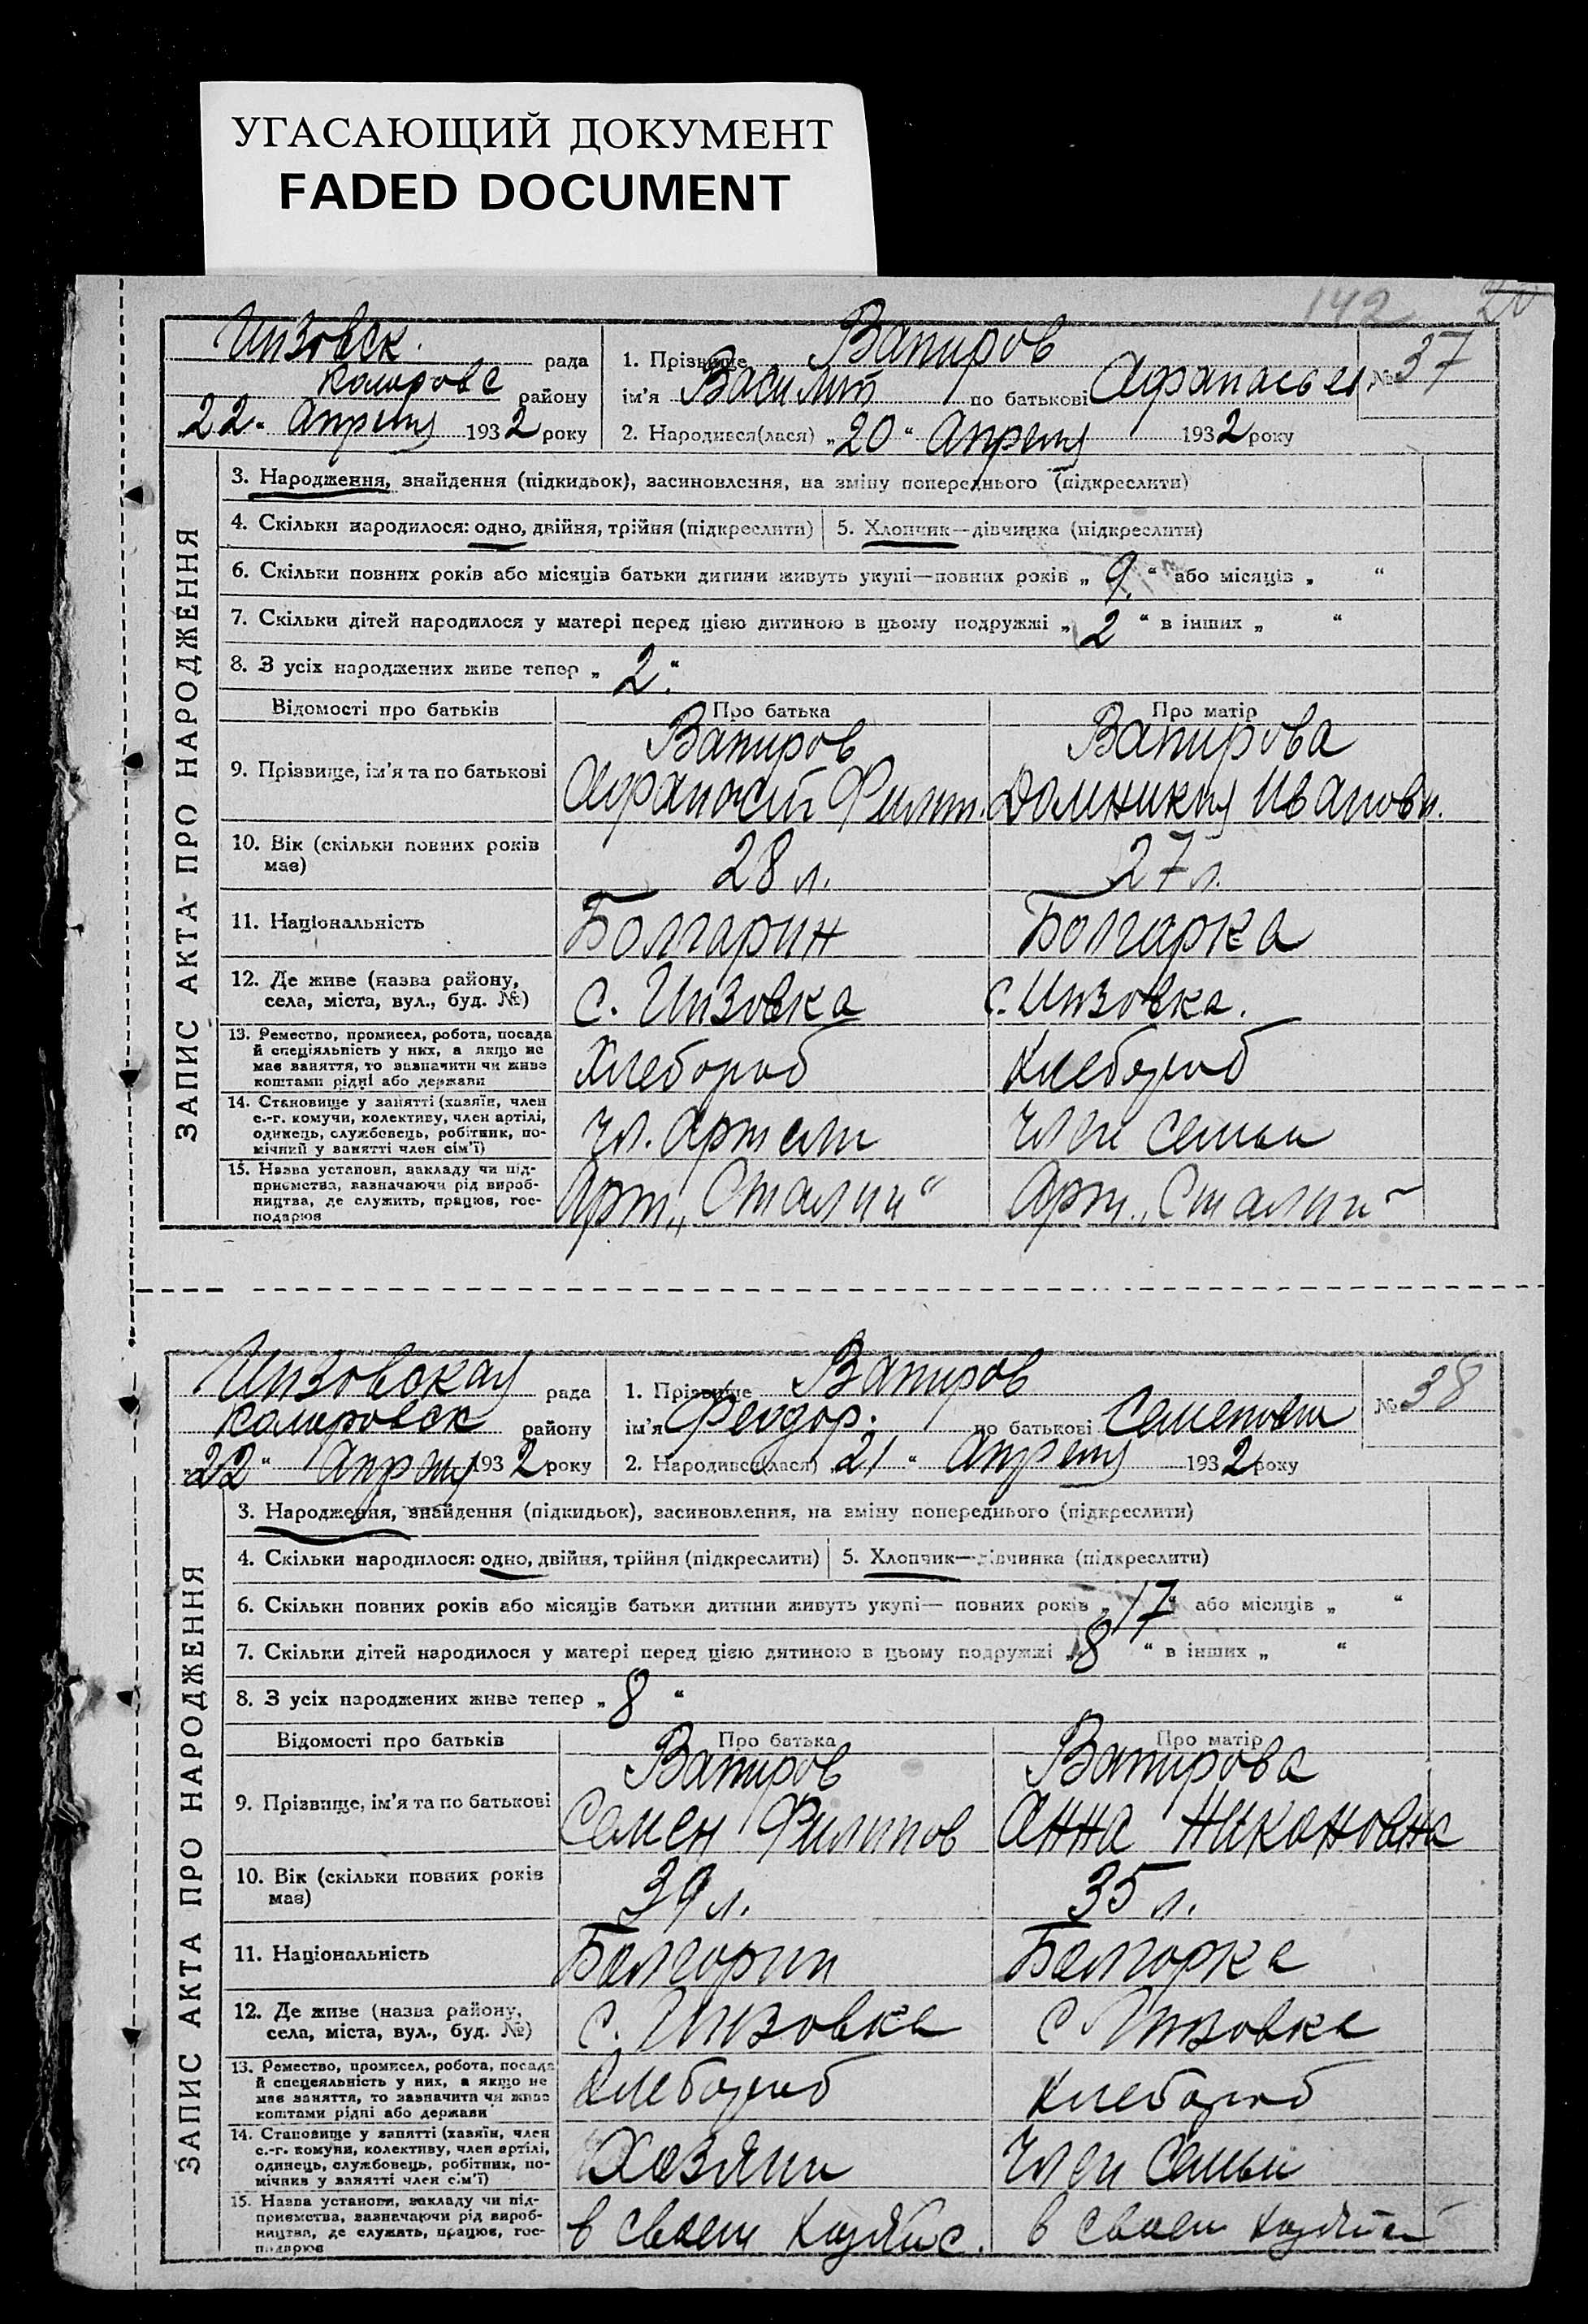 УГАСАЮЩИЙ ДОКУМЕНТ
FADED DOCUMENT
142 20
Инзовск. рада
Коларовс району
22 " Апреля 1932 року
1. Прізвище Вапиров
ім'я Василий по батькові Афанасьев
№ 37
2. Народився(лася) „20" Апреля 1932 року
ЗАПИС АКТА ПРО НАРОДЖЕННЯ
3. Народження, знайдення (підкидьок), засиновлення, на зміну попереднього (підкреслити)
4. Скільки народилося: одно, двійня, трійня (підкреслити) 5. Хлопчик—дівчинка (підкреслити)
6. Скільки повних років або місяців батьки дитини живуть укупі—повних років „ 9 " або місяців „ "
7. Скільки дітей народилося у матері перед цією дитиною в цьому подружжі „ 2 " в інших „ "
8. З усіх народжених живе тепер „ 2 "
Відомості про батьків Про батька Про матір
9. Прізвище, ім'я та по батькові
Вапиров Афанасий Филип.
Вапирова Домникия Ивановн.
10. Вік (скільки повних років має) 28 л. 27 л.
11. Національність Болгарин Болгарка
12. Де живе (назва району, села, міста, вул., буд. №) с. Инзовка с. Инзовка.
13. Ремество, промисел, робота, посада
й спеціяльність у них, а якщо не
має заняття, то зазначити чи живе
коштами рідні або держави
Хлебороб Хлебороб
14. Становище у занятті (хазяїн, член
с.-г. комуни, колективу, член артілі,
одинець, службовець, робітник, по-
мічний у занятті член сім'ї)
чл. артели член семьи
15. Назва установи, закладу чи під-
приємства, зазначаючи рід вироб-
ництва, де служить, працює, гос-
подарює
Арт. „Сталин" Арт. „Сталин"
Инзовская рада
Коларовск району
„22" Апреля 1932 року
1. Прізвище Вапиров
ім'я Феодор. по батькові Семенович
№ 38
2. Народився(лася) „21" Апреля 1932 року
ЗАПИС АКТА ПРО НАРОДЖЕННЯ
3. Народження, знайдення (підкидьок), засиновлення, на зміну попереднього (підкреслити)
4. Скільки народилося: одно, двійня, трійня (підкреслити) 5. Хлопчик—дівчинка (підкреслити)
6. Скільки повних років або місяців батьки дитини живуть укупі— повних років „ 17 " або місяців „ "
7. Скільки дітей народилося у матері перед цією дитиною в цьому подружжі „ 8 " в інших „ "
8. З усіх народжених живе тепер „ 8 "
Відомості про батьків Про батька Про матір
9. Прізвище, ім'я та по батькові
Вапиров Семен Филипов
Вапирова Анна
10. Вік (скільки повних років має) 39 л. 35 л.
11. Національність Болгорин Болгорка
12. Де живе (назва району, села, міста, вул., буд. №) с. Инзовка с Инзовка
13. Ремество, промисел, робота, посада
й спецеяльність у них, а якщо не
має заняття, то зазначити чи живе
коштами рідні або держави
Хлебороб Хлебороб
14. Становище у занятті (хазяїн, член
с.-г. комуни, колективу, член артілі,
одинець, службовець, робітник, по-
мічник у занятті член сім'ї)
Хозяин член семьи
15. Назва установи, закладу чи під-
приємства, зазначаючи рід вироб-
ництва, де служить, працює, гос-
подарює
в своем хозяйс. в своем